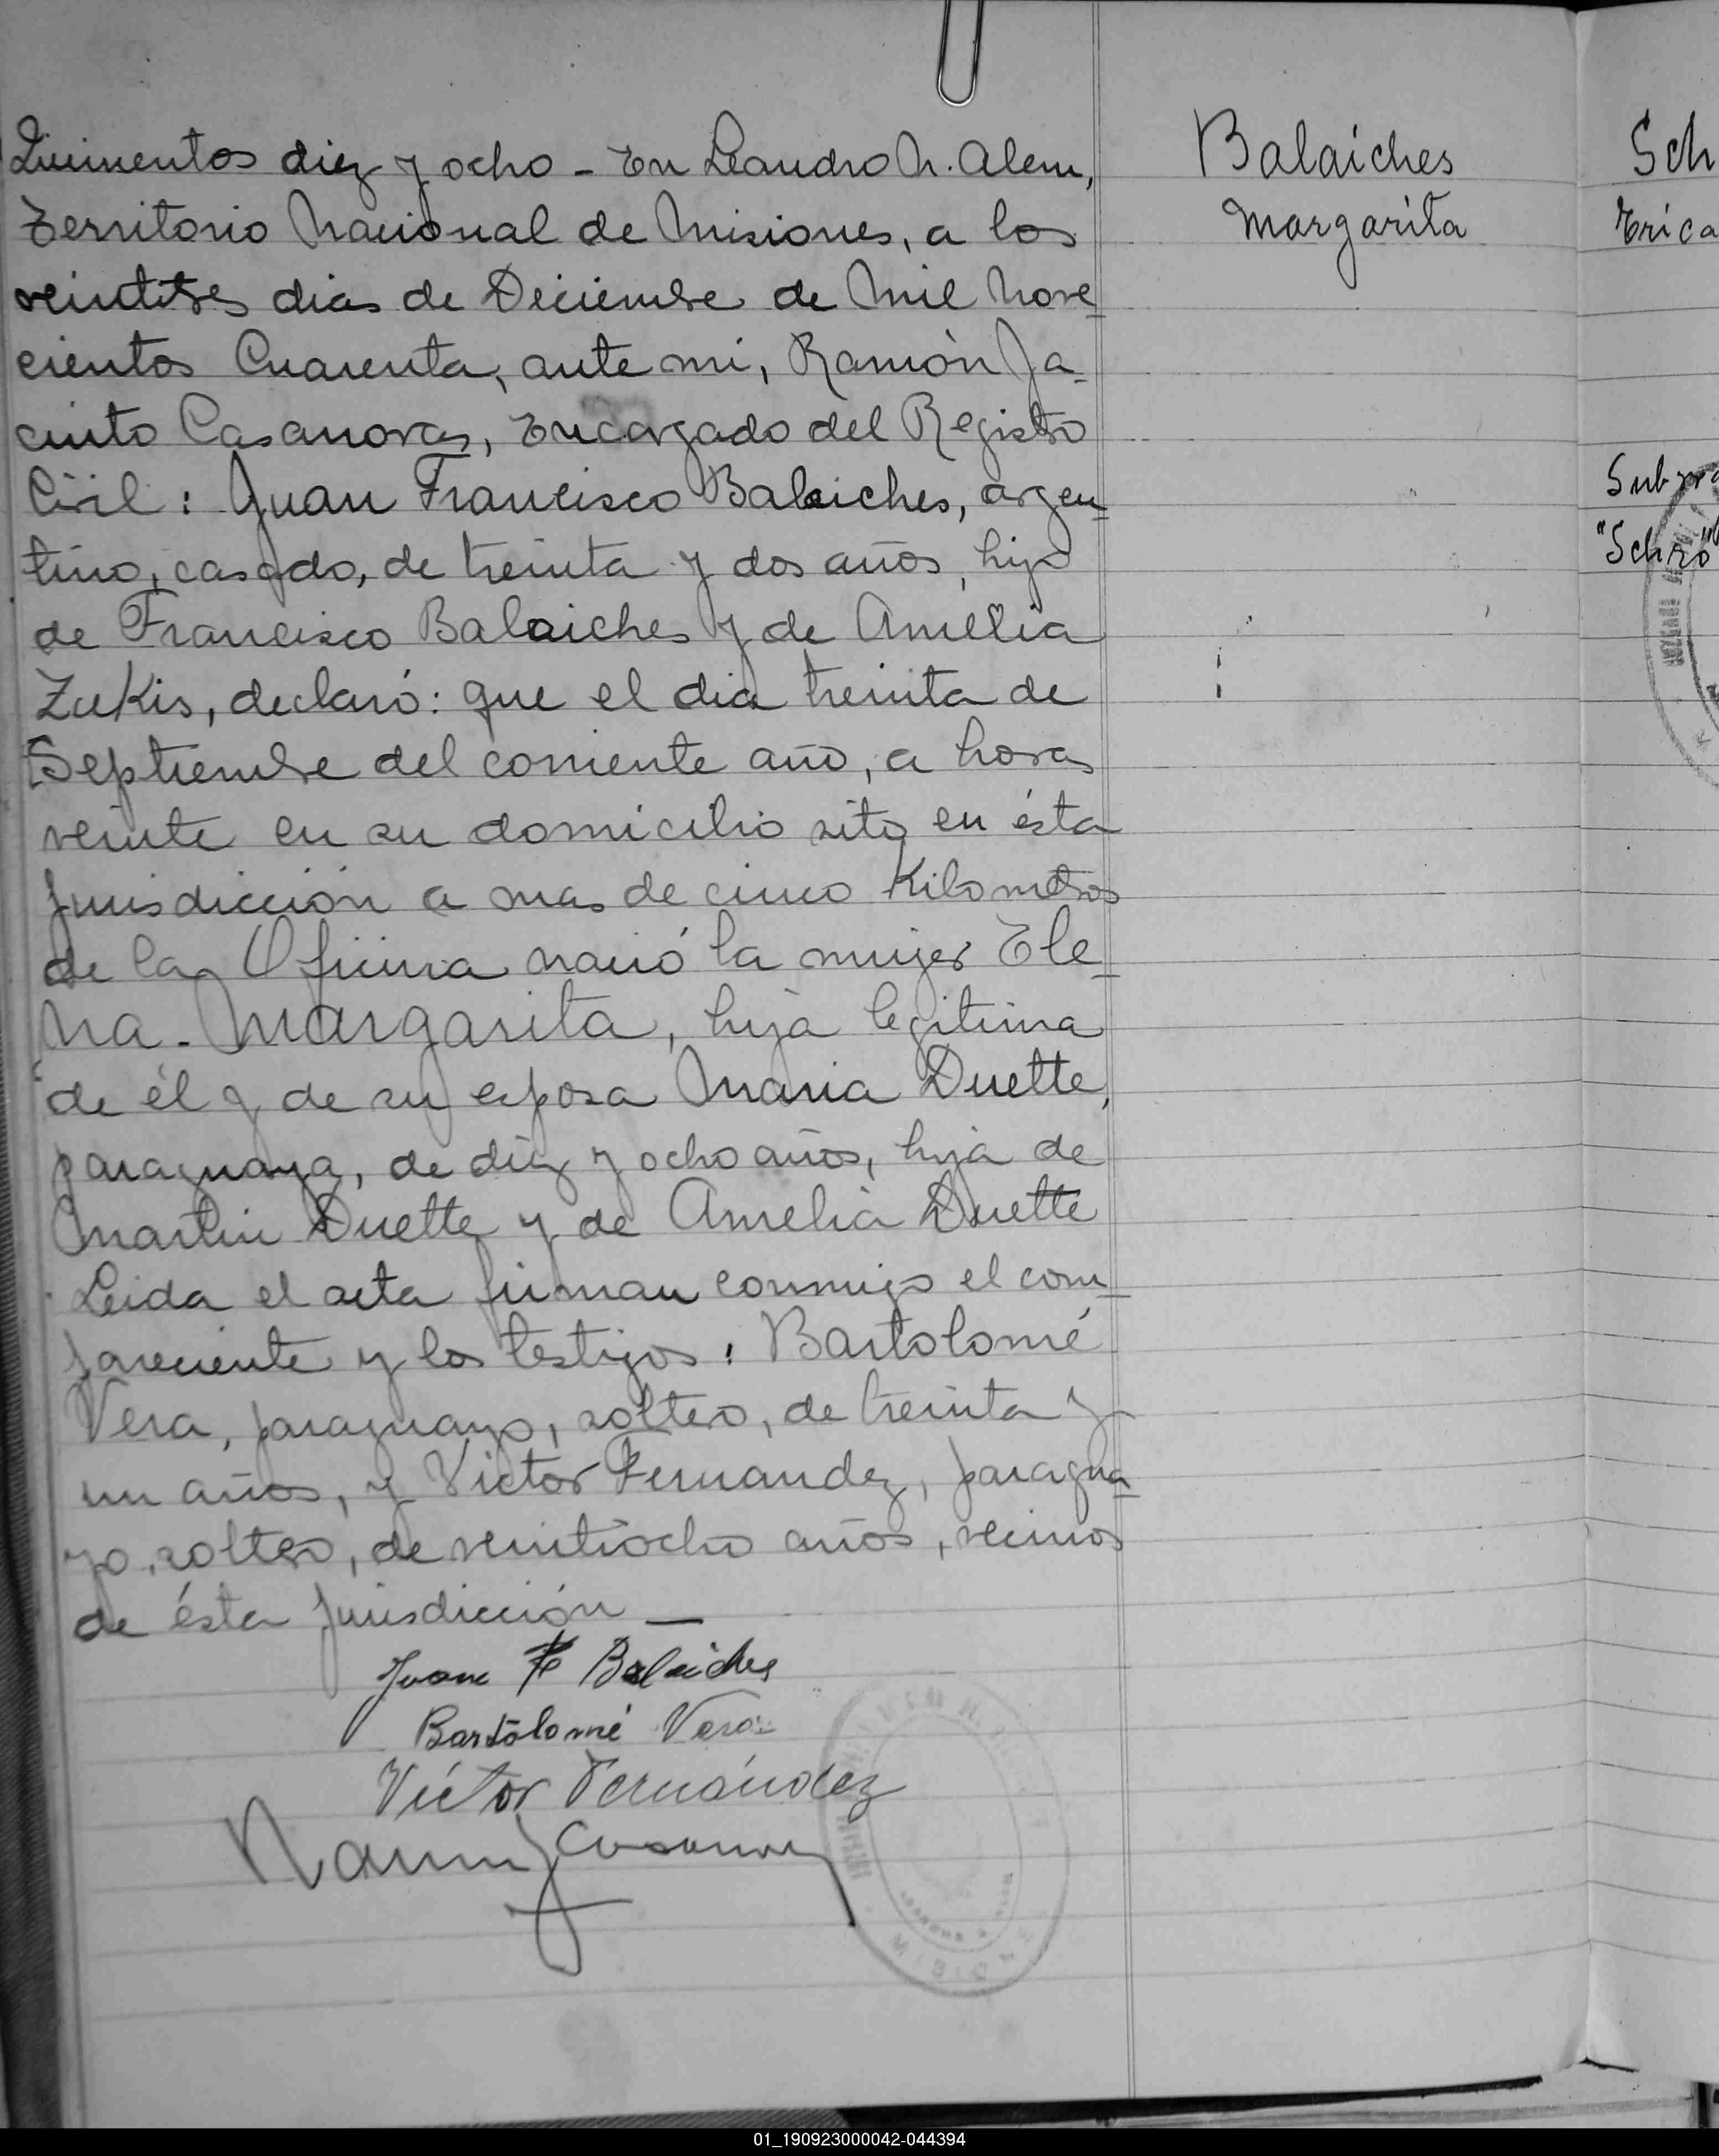 Quinientos diez y ocho - En Leandro N. Alem,
Territorio Nacional de Misiones, a los
veintitres dias de Diciembre de Mil Nove-
cientos Cuarenta, ante mi, Ramón Ja-
cinto Casanovas, Encargado del Registro
Civil: Juan Francisco Balaiches, argen-
tino, casado, de treinta y dos años, hijo
de Francisco Balaiches y de Amélia
Zukis, declaró: que el dia treinta de
Septiembre del corriente año, a horas
veinte en su domicilio sito en ésta
Jurisdicción a mas de cinco Kilometros
de la Oficina nació la mujer Ele-
na. Margarita, hija legitima
de él y de su esposa Maria Duette,
paraguaya, de diez y ocho años, hija de
Martin Duette y de Amelia Duette
Leida el acta firman conmigo el com-
pareciente y los testigos: Bartolomé
Vera, paraguayo, soltero, de treinta y
un años, y Victor Fernandez, paragua-
yo, soltero, de veintiocho años, vecinos
de ésta Jurisdicción
Juan F Balaiches
Bartolomé Vera
Victor Fernández
Ramon J Casanovas
Balaiches
Margarita
Sch
Erica
"Schrö"
01_190923000042-044394